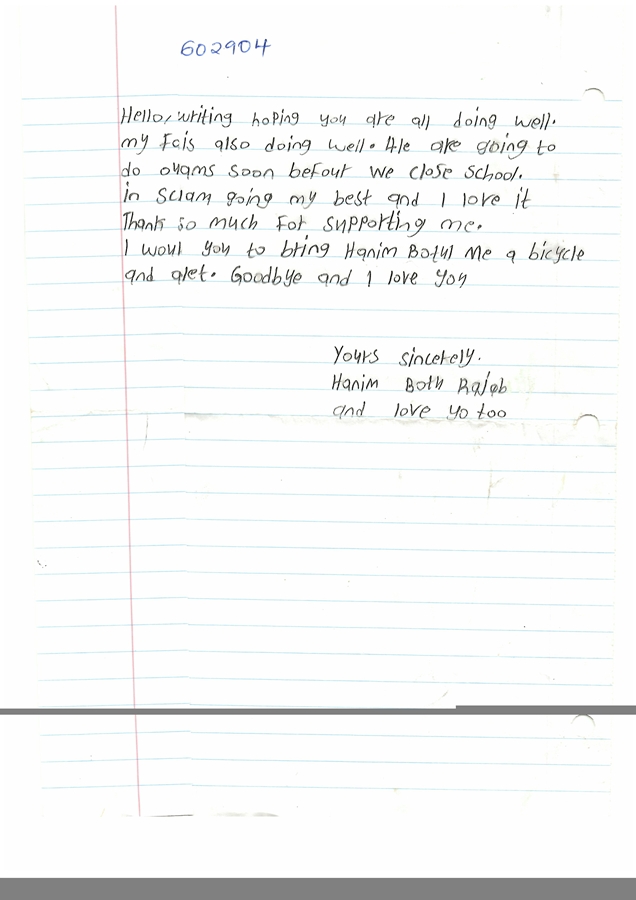 602904
Hello, writing hoping you are all doing well.
my Fais also doing well. We are going to
do oyams soon befour we close school.
in Sclam going my best and I love it
Thank so much for supporting me.
I woul you to bring Hanim Botul Me a bicycle
and alet. Goodbye and I love you
Yours sincerely.
Hanim Both Rajab
and love yo too